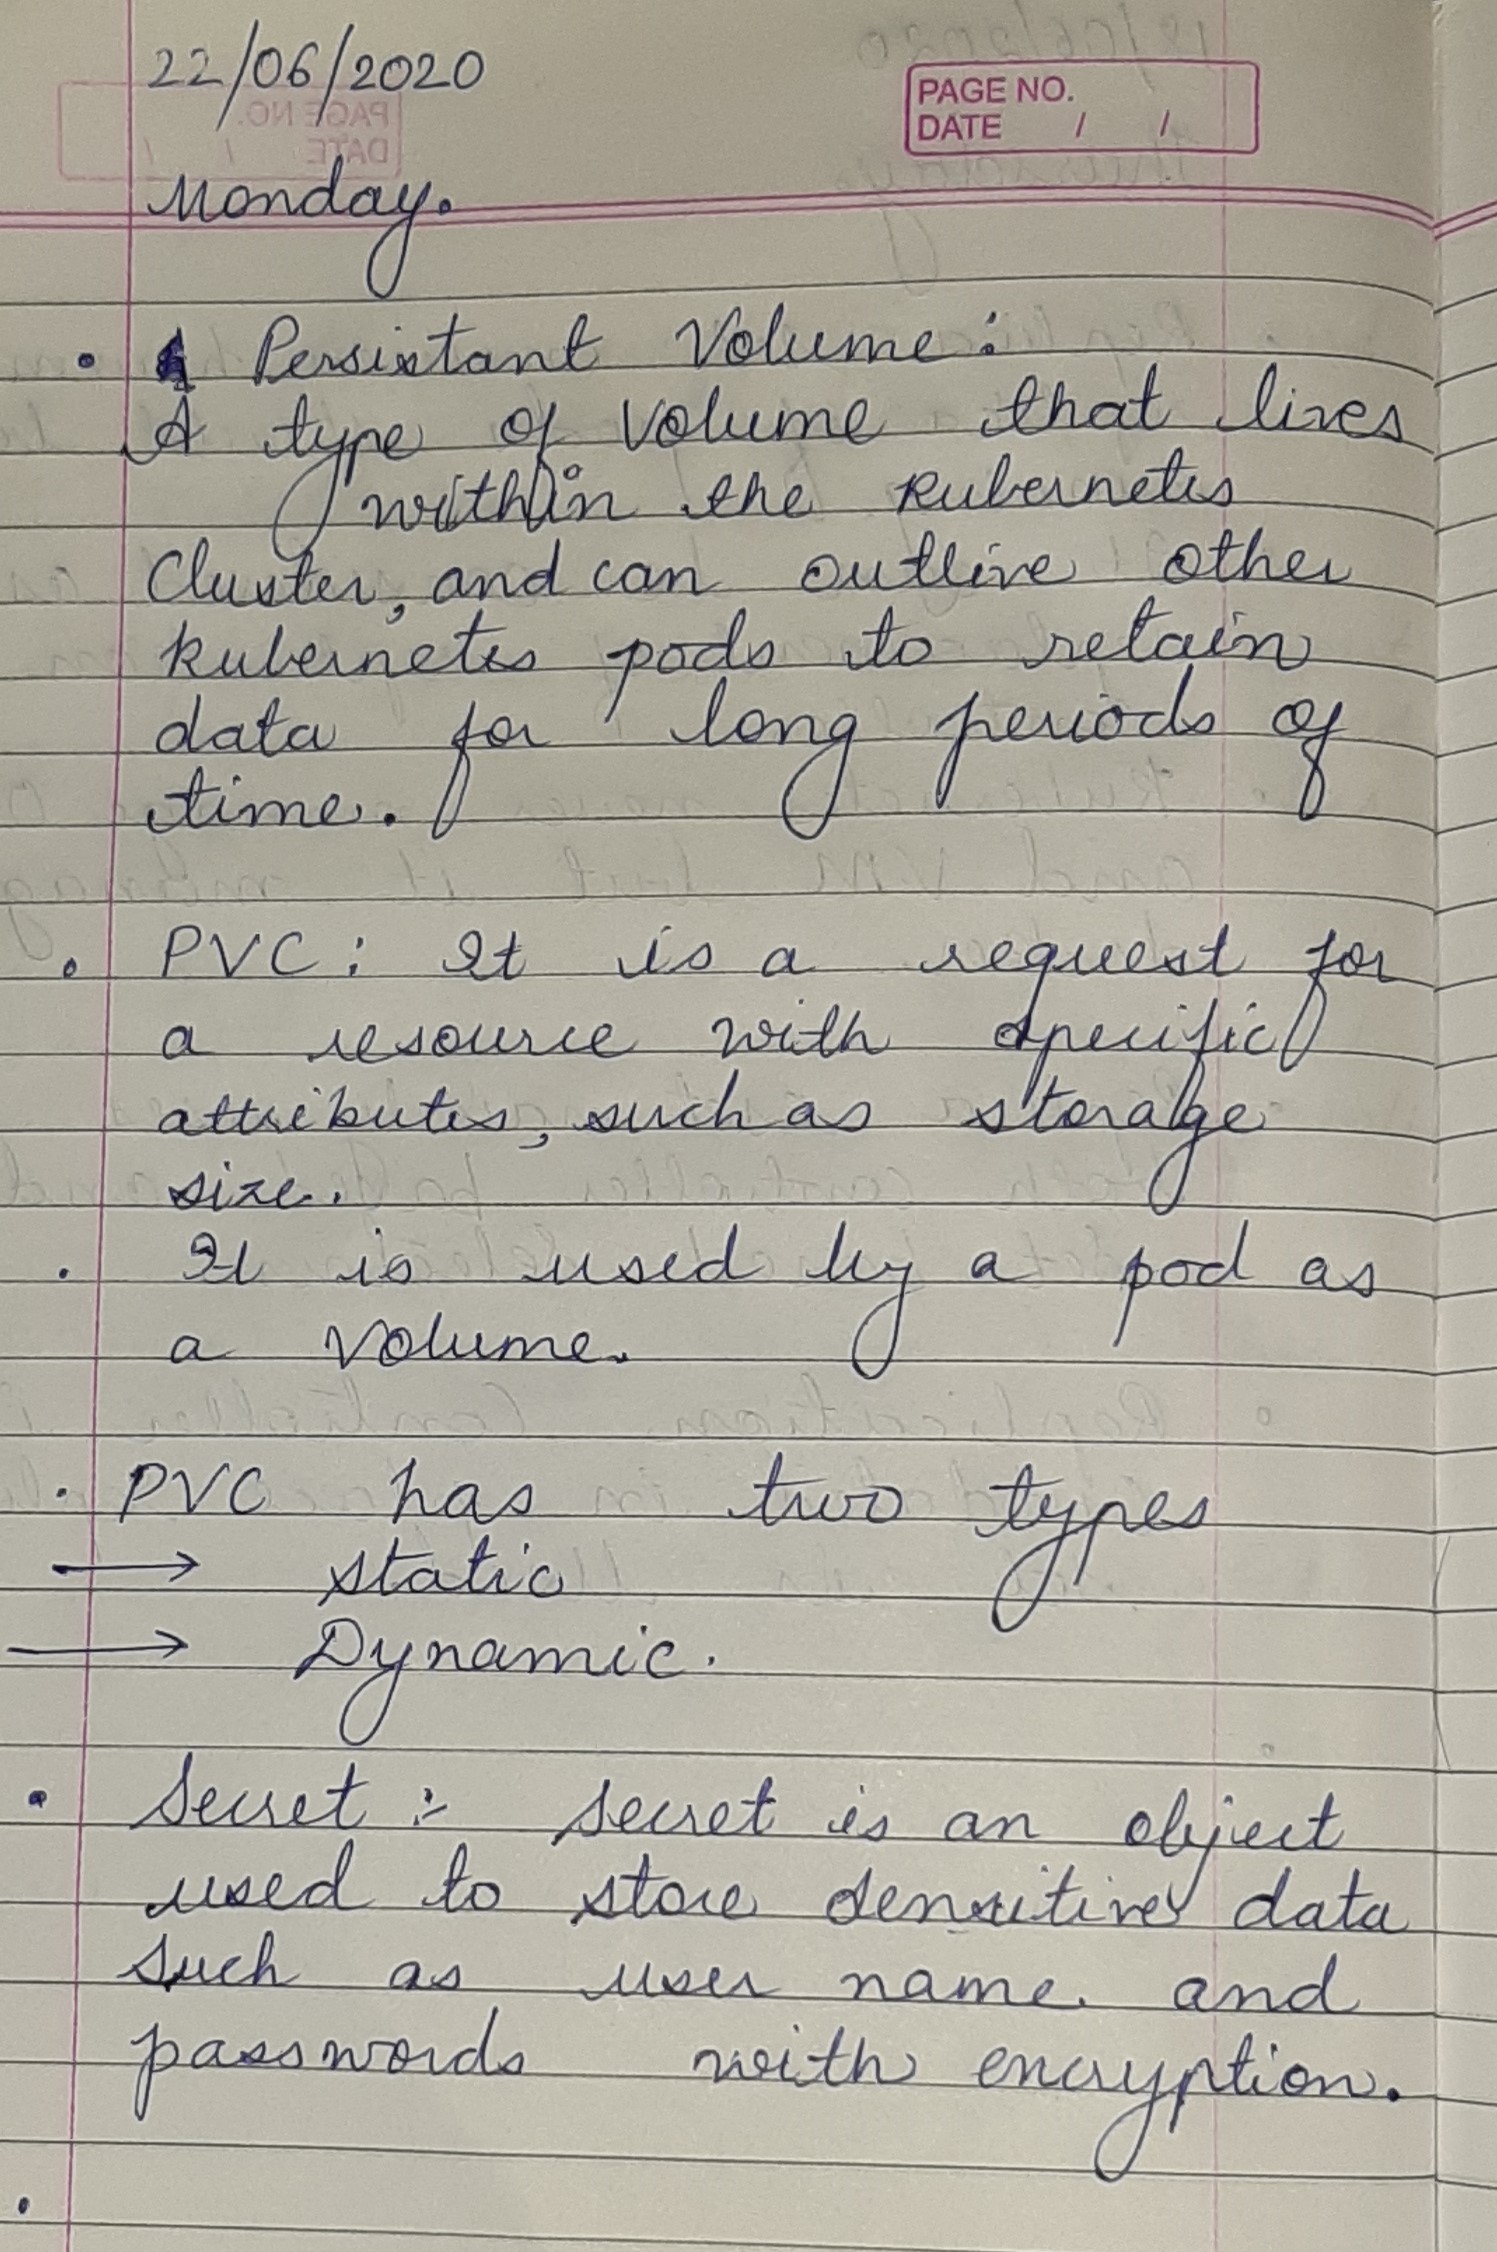 22/06/2020
PAGE NO.
DATE / /
Monday.
• Persistant Volume:
A type of volume that lives
within the kubernetes
Cluster, and can outlive other
kubernetes pods to retain
data for long periods of
time.
• PVC: It is a request for
a resource with specific
attributes, such as storage
size.
. It is used by a pod as
a volume.
. PVC has two types
→ static
→ Dynamic.
• Secret :- Secret is an object
used to store sensitive data
such as user name and
passwords with encryption.
.